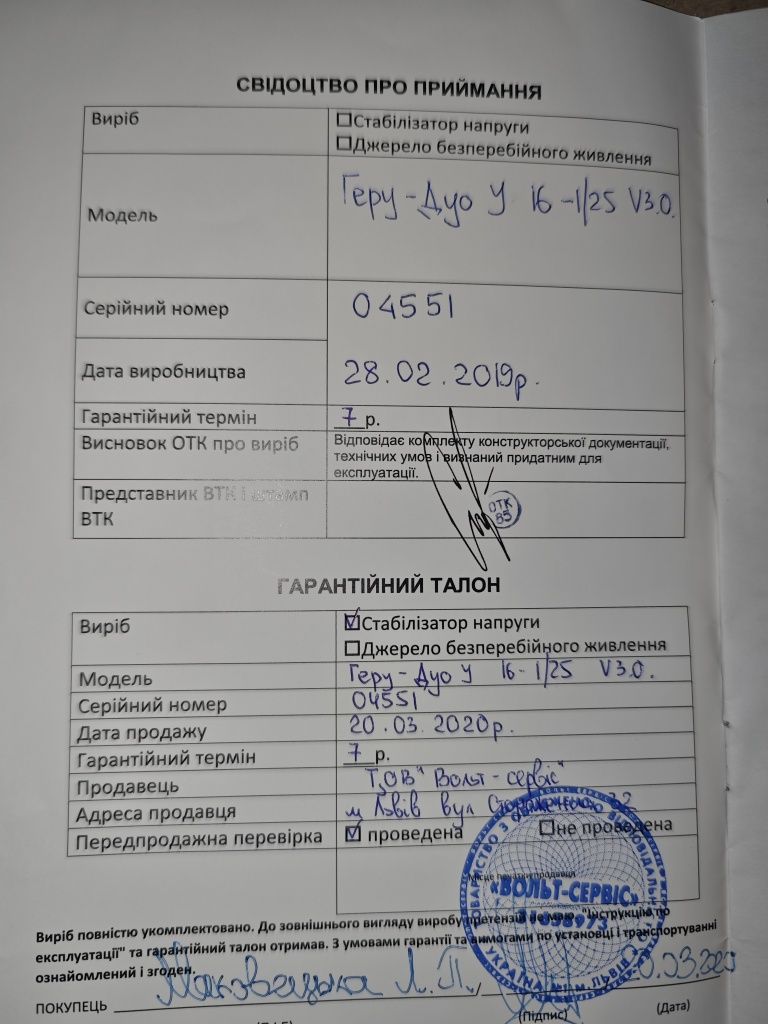 СВІДОЦТВО ПРО ПРИЙМАННЯ
Виріб
☐Стабілізатор напруги
☐Джерело безперебійного живлення
Модель
Геру-Дуо У 16-1/25 V3.0.
Серійний номер
04551
Дата виробництва
28.02.2019р.
Гарантійний термін
7 р.
Висновок ОТК про виріб
Відповідає комплекту конструкторської документації,
технічних умов і визнаний придатним для
експлуатації.
Представник ВТК і штамп
ВТК
ОТК
85
ГАРАНТІЙНИЙ ТАЛОН
Виріб
☑Стабілізатор напруги
☐Джерело безперебійного живлення
Модель
Геру-Дуо У 16-1/25 V3.0.
Серійний номер
04551
Дата продажу
20.03.2020р.
Гарантійний термін
7 р.
Продавець
ТзОВ "Вольт-сервіс"
Адреса продавця
м Львів вул 32
Передпродажна перевірка
☑ проведена ☐не проведена
Місце печатки продавця
«ВОЛЬТ-СЕРВІС»
Виріб повністю укомплектовано. До зовнішнього вигляду виробу претензій не маю. "Інструкцію по
експлуатації" та гарантійний талон отримав. З умовами гарантії та вимогами по установці і транспортуванні
ознайомлений і згоден.
ПОКУПЕЦЬ Л.П. / 20.03.2020
(Підпис)
(Дата)